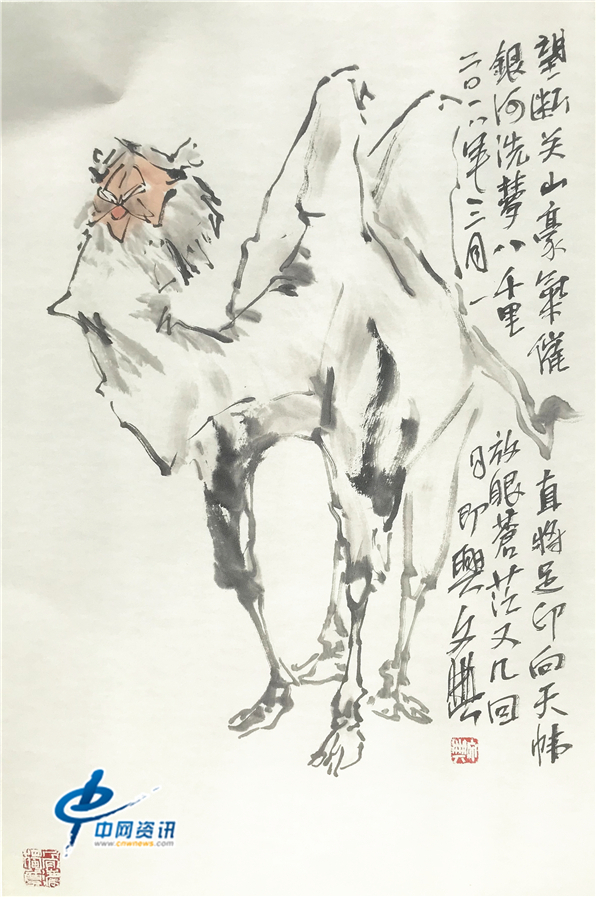 望断关山豪氣催 直将足印向天帏
銀河洗夢八千里 放眼蒼茫又几回
二〇一八年三月一日即興
中网资讯
www.cnwnews.com